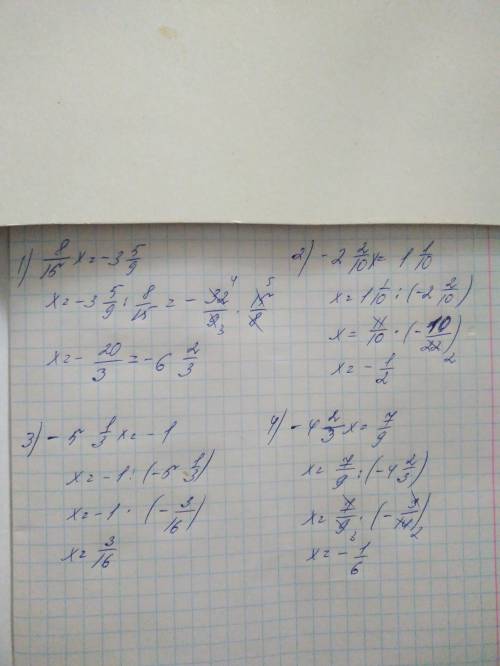 1) 8/15 x = -3 5/9
x = -3 5/9 : 8/15 = - 32/9 · 15/8 4 3 5
x = - 20/3 = -6 2/3
2) -2 2/10 x = 1 1/10
x = 1 1/10 : (-2 2/10)
x = 11/10 · (- 10/22) 2
x = - 1/2
3) -5 1/3 x = -1
x = -1 : (-5 1/3)
x = -1 · (- 3/16)
x = 3/16
4) -4 2/3 x = 7/9
x = 7/9 : (-4 2/3)
x = 7/9 · (- 3/14) 2
x = - 1/6